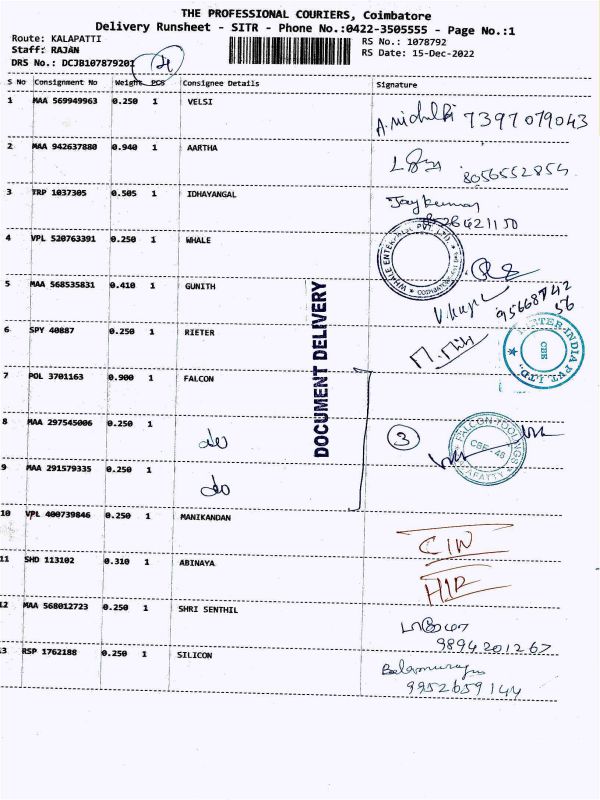 THE PROFESSIONAL COURIERS, Coimbatore
Delivery Runsheet - SITR - Phone No.:0422-3505555 - Page No.:1
Route: KALAPATTI
RS No.: 1078792
Staff: RAJAN
RS Date: 15-Dec-2022
DRS No.: DCJB107879201
S No Consignment No Weight PCS Consignee Details Signature
1 MAA 569949963 0.250 1 VELSI
7397079043
2 MAA 942637880 0.940 1 AARTHA
8056552854
3 TRP 1037305 0.505 1 IDHAYANGAL Jaykumar
4 VPL 520763391 0.250 1 WHALE
5 MAA 568535831 0.410 1 GUNITH
9566874256
6 SPY 40887 0.250 1 RIETER
7 POL 3701163 0.900 1 FALCON
DOCUMENT DELIVERY
8 MAA 297545006 0.250 1 do 3
FALCON TOOLINGS
9 MAA 291579335 0.250 1 do
10 VPL 400739846 0.250 1 MANIKANDAN
CIN
11 SHD 113102 0.310 1 ABINAYA
HIR
12 MAA 568012723 0.250 1 SHRI SENTHIL
9894201267
13 RSP 1762188 0.250 1 SILICON Balamurugan
9952659144